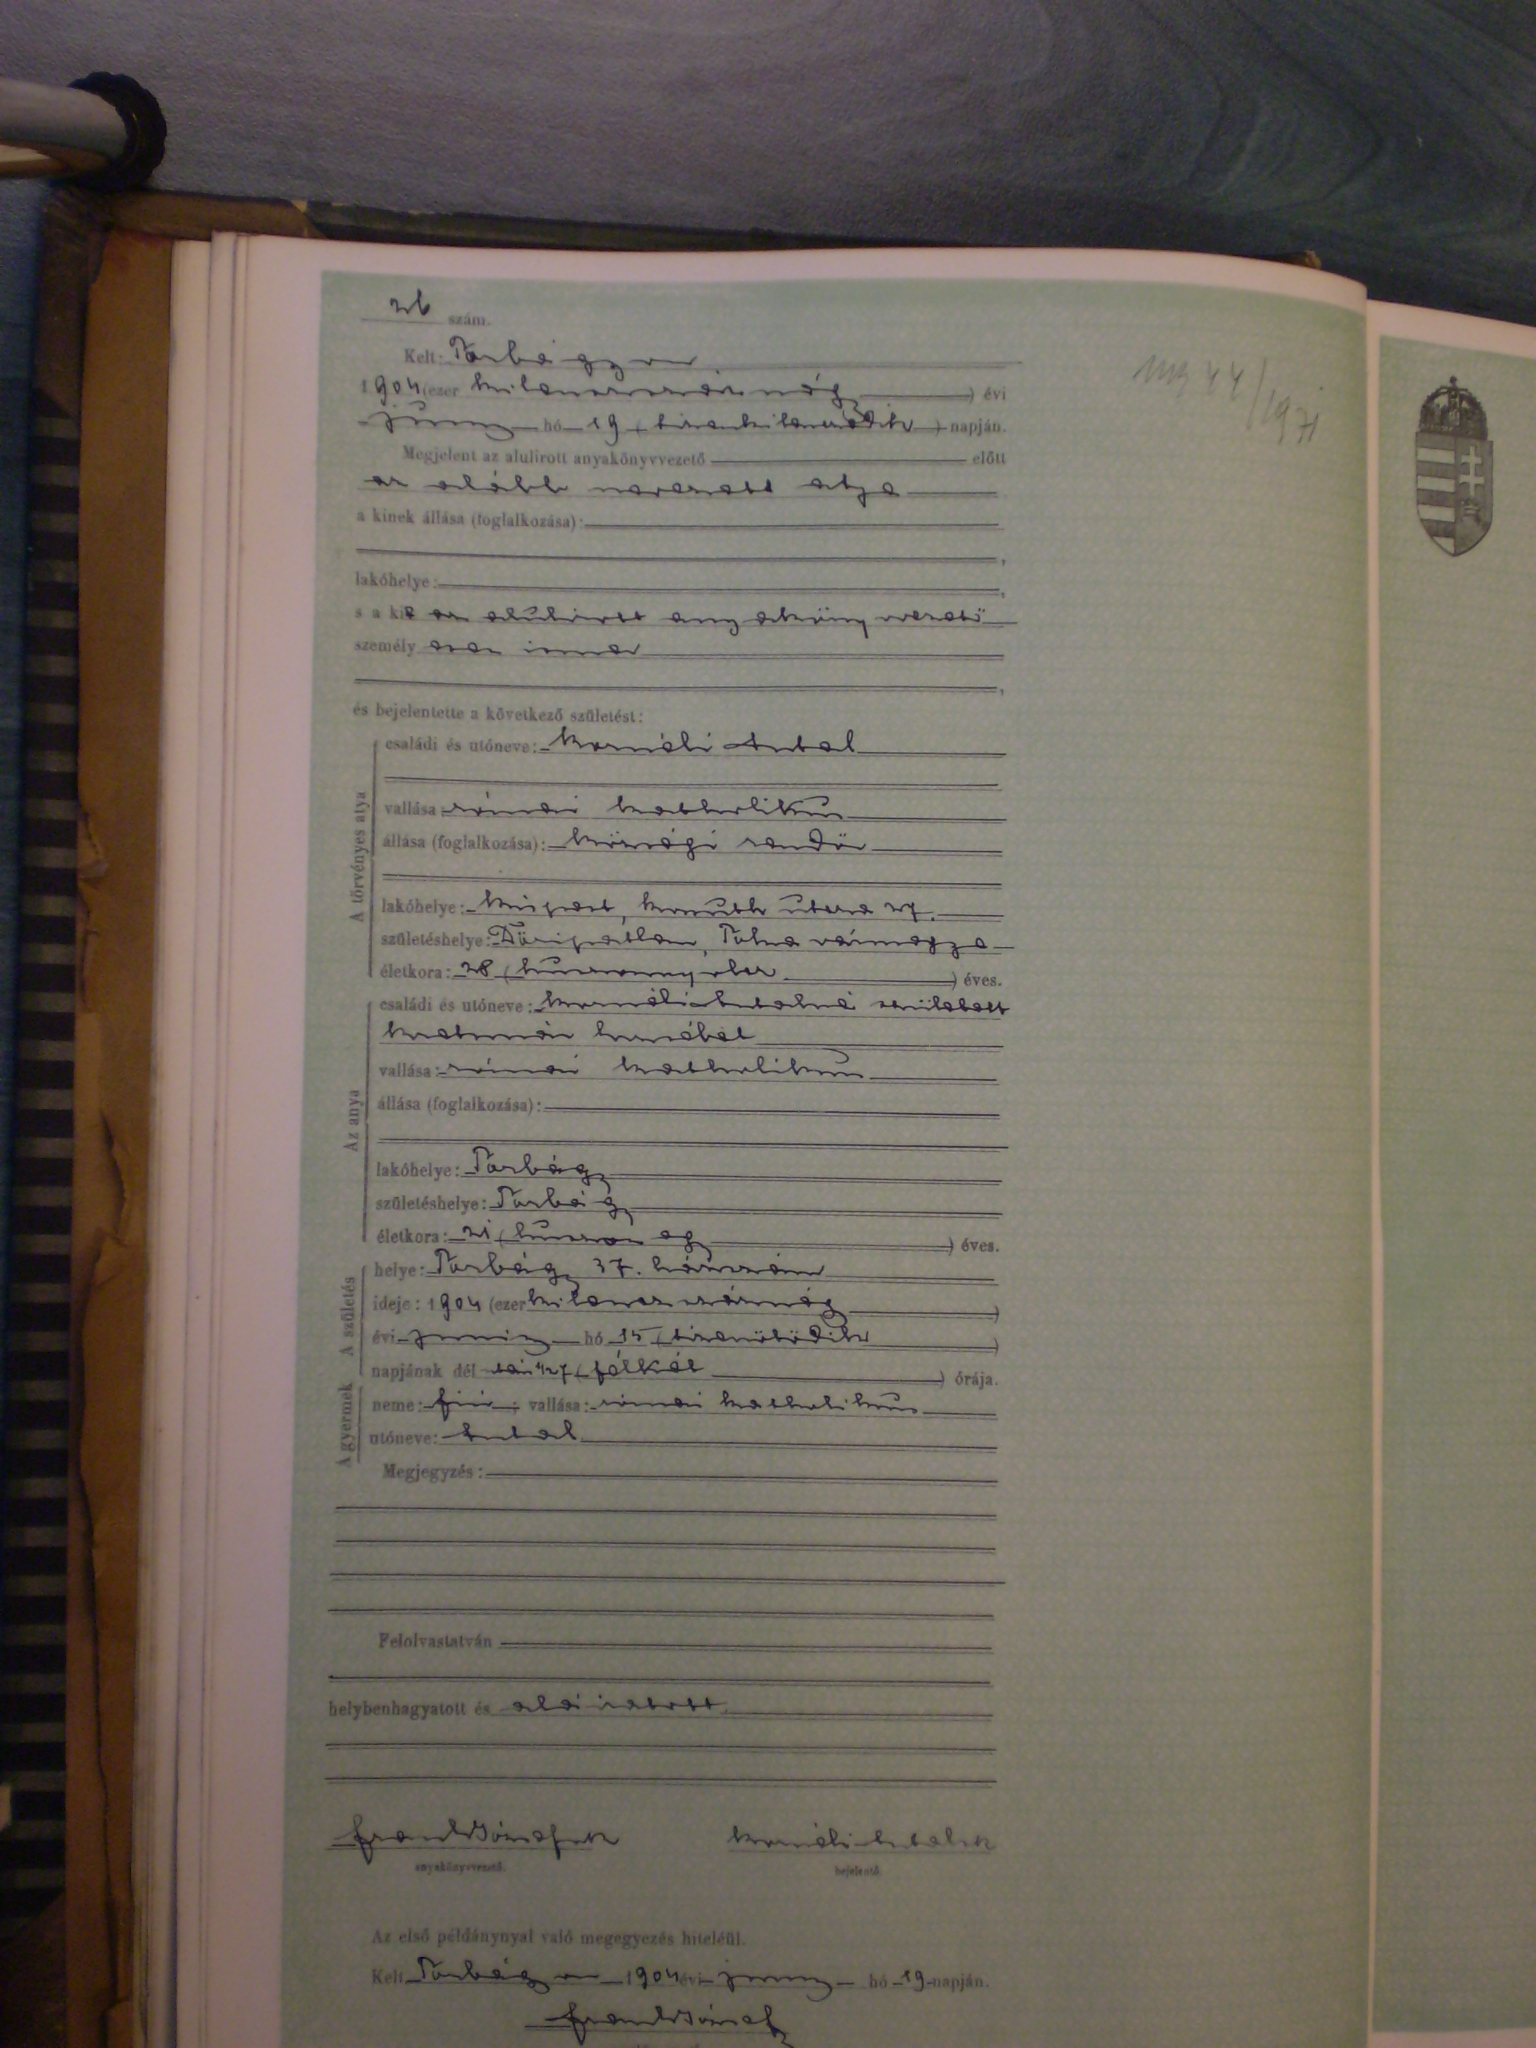 26 szám.
Kelt: Torbágyon
1904 (ezer kilenczszáznégy) évi
juny hó 19 (tizenkilenczedik) napján.
Megjelent az alulírott anyakönyvvezető előtt
az alább nevezett atya
a kinek állása (foglalkozása):
lakóhelye:
s a kit az alulirott anyakönyvvezető
személyesen ismer
és bejelentette a következő születést:
A törvényes atya
családi és utóneve: Kornéli Antal
vallása: római katholikus
állása (foglalkozása): községi rendőr
lakóhelye: Kispest, Kossuth utcza 27.
születéshelye: Döripatlan, Tolna vármegye
életkora: 28 (huszonnyolcz) éves.
Az anya
családi és utóneve: Kornéli Antalné született
vallása: római katholikus
állása (foglalkozása):
lakóhelye: Torbágy
születéshelye: Torbágy
életkora: 21 (huszonegy) éves.
A születés
helye: Torbágy 37. házszám
ideje: 1904 (ezer kilenczszáznégy)
évi junius hó 15 (tizenötödik)
napjának dél 1/27 (félhét) órája.
A gyermek
neme: fiú; vallása: római katholikus
utóneve: Antal
Megjegyzés:
Felolvastatván
helybenhagyatott és aláiratott
Frank József sk Kornéli Antal sk
anyakönyvvezető. bejelentő.
Az első példánynyal való megegyezés hiteléül.
Kelt Torbágyon 1904 évi juny hó 19 napján.
Frank József
44/1971